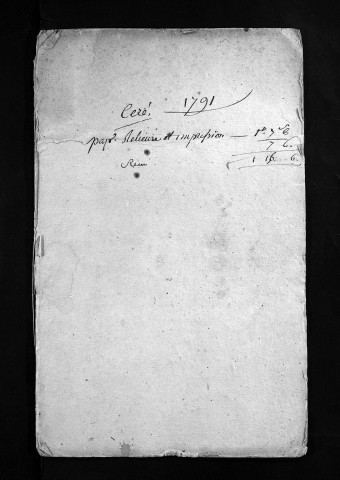 Ceré. 1791
papr. Relieure et impression — 1# 7s 6
7 6.
1 15 6.